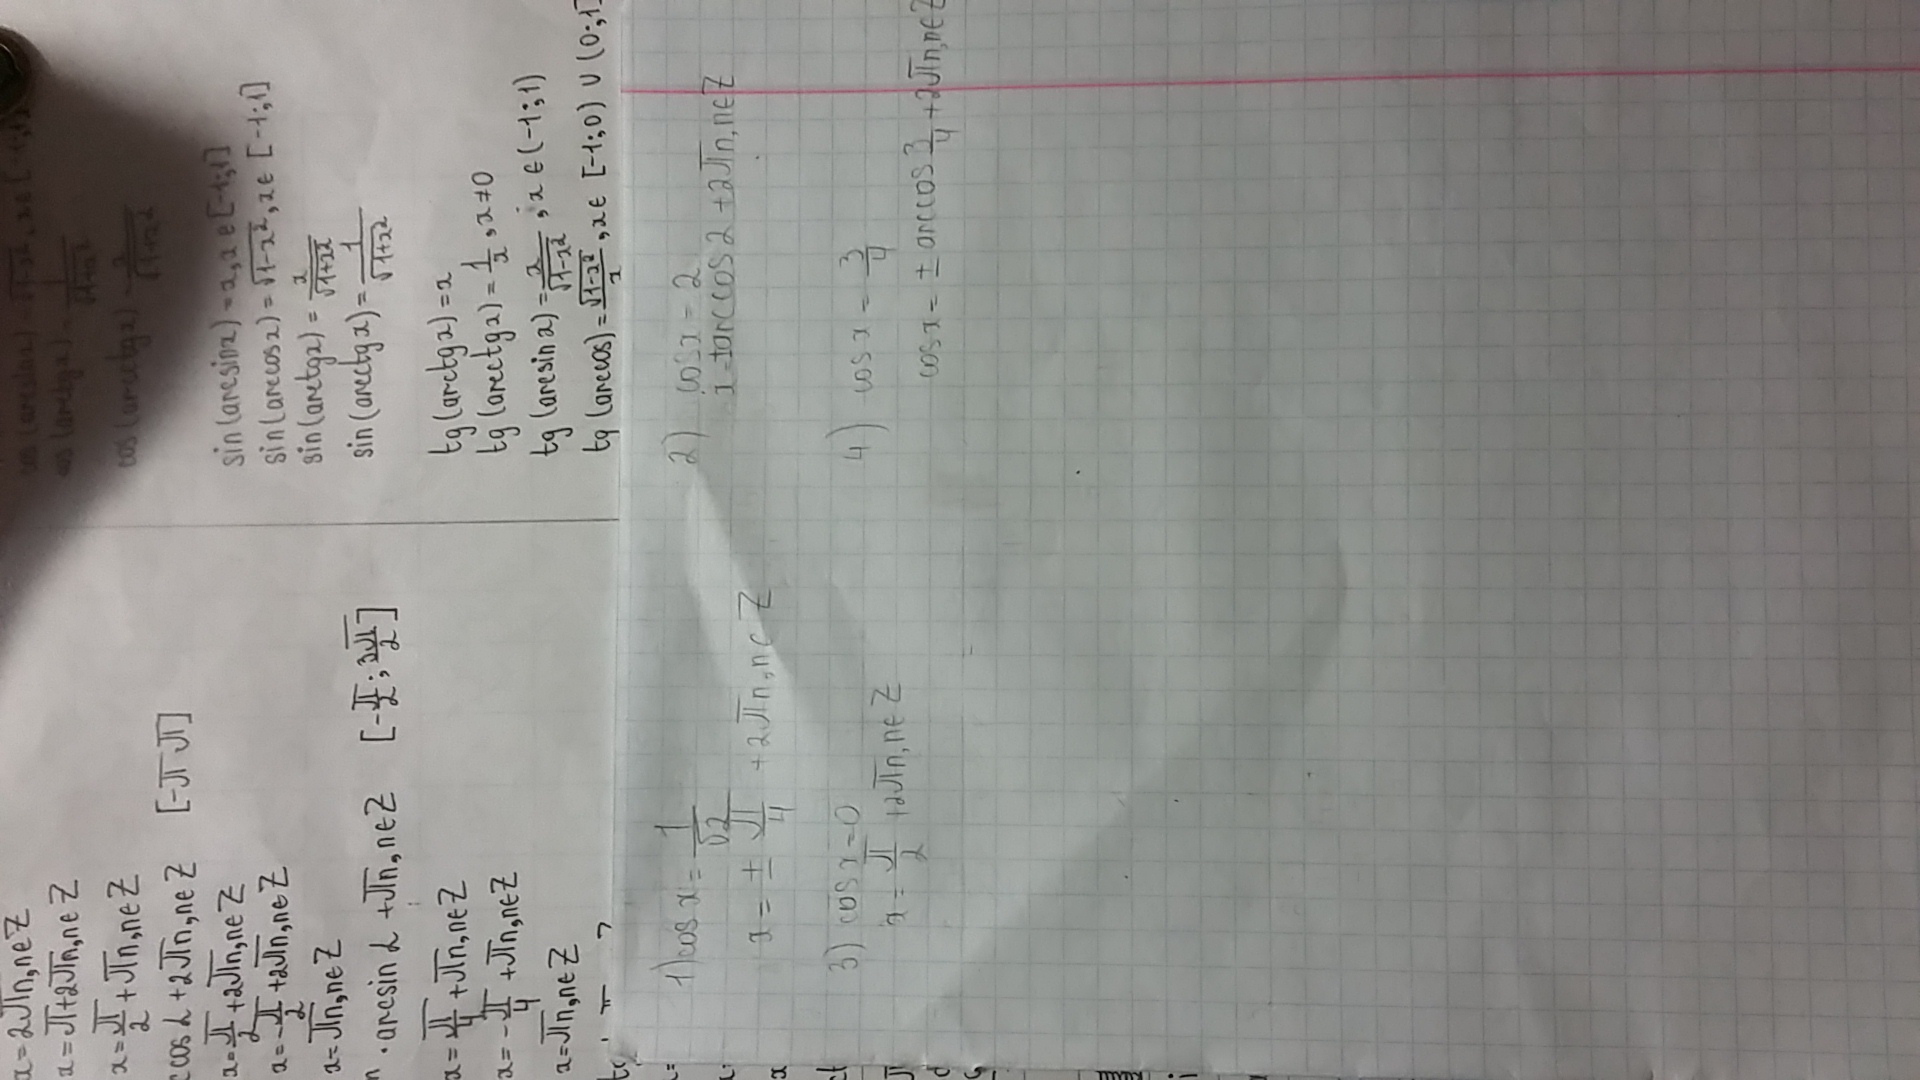 x=2πn,n∈Z
x=π+2πn,n∈Z
x=π/2+πn,n∈Z
cos α+2πn,n∈Z [-π π]
x=π/2+2πn,n∈Z
x=-π/2+2πn,n∈Z
x=πn,n∈Z
n · arcsin α +πn,n∈Z [-π/2; 3π/2]
x=π/4+πn,n∈Z
x=-π/4+πn,n∈Z
x=πn,n∈Z
cos(arcctgx)=x/√1+x²
sin(arcsinx)=x,x∈[-1;1]
sin(arccosx)=√1-x²,x∈[-1;1]
sin(arctgx)=x/√1+x²
sin(arcctgx)=1/√1+x²
tg(arctgx)=x
tg(arcctgx)=1/x,x≠0
tg(arcsinx)=x/√1-x²;x∈(-1;1)
tg(arccos)=√1-x²/x,x∈[-1;0)∪(0;1]
1) cos x = 1/√2
x = ± π/4 + 2πn,n∈Z
2) cos x = 2
x=±arccos2+2πn,n∈Z
3) cos x=0
x = π/2 +2πn,n∈Z
4) cos x = 3/4
cos x = ± arccos 3/4 +2πn,n∈Z